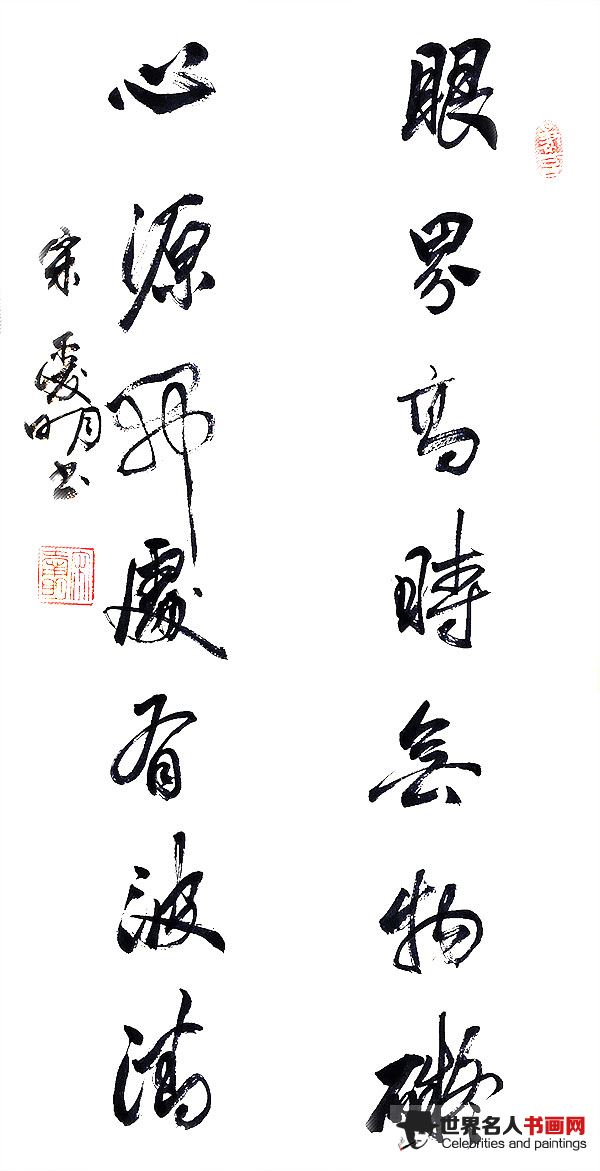 眼界高時無物礙
心源開處有波清
宋 明书
世界名人书画网
Celebrities and paintings